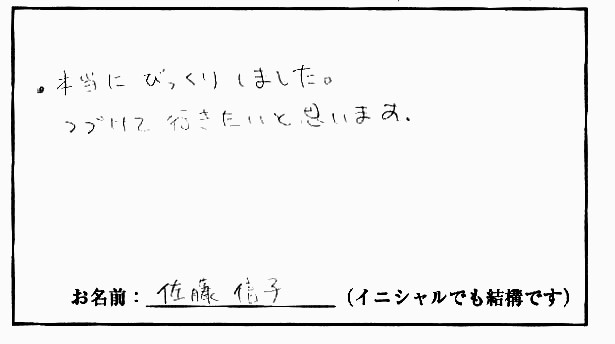 ・本当に びっくりしました。
つづけて 行きたいと思います.
お名前：佐藤 信子 （イニシャルでも結構です）